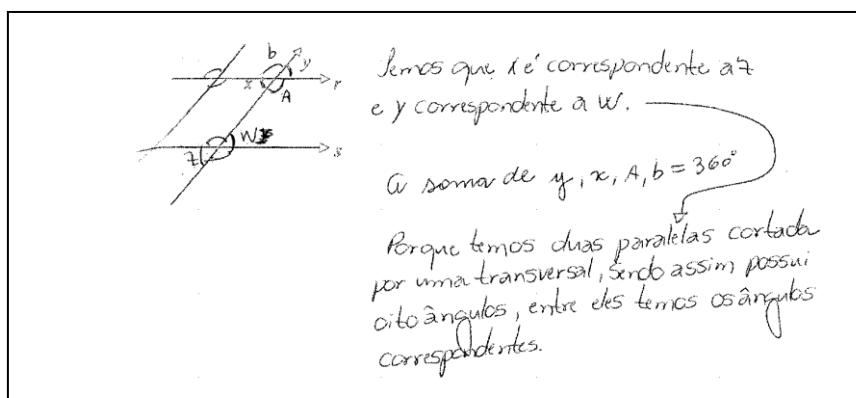 b
y
x
A
r
W
z
s
Temos que x é correspondente a z
e y correspondente a W.
A soma de y, x, A, b = 360°
Porque temos duas paralelas cortada
por uma transversal, sendo assim possui
oito ângulos, entre eles temos os ângulos
correspondentes.